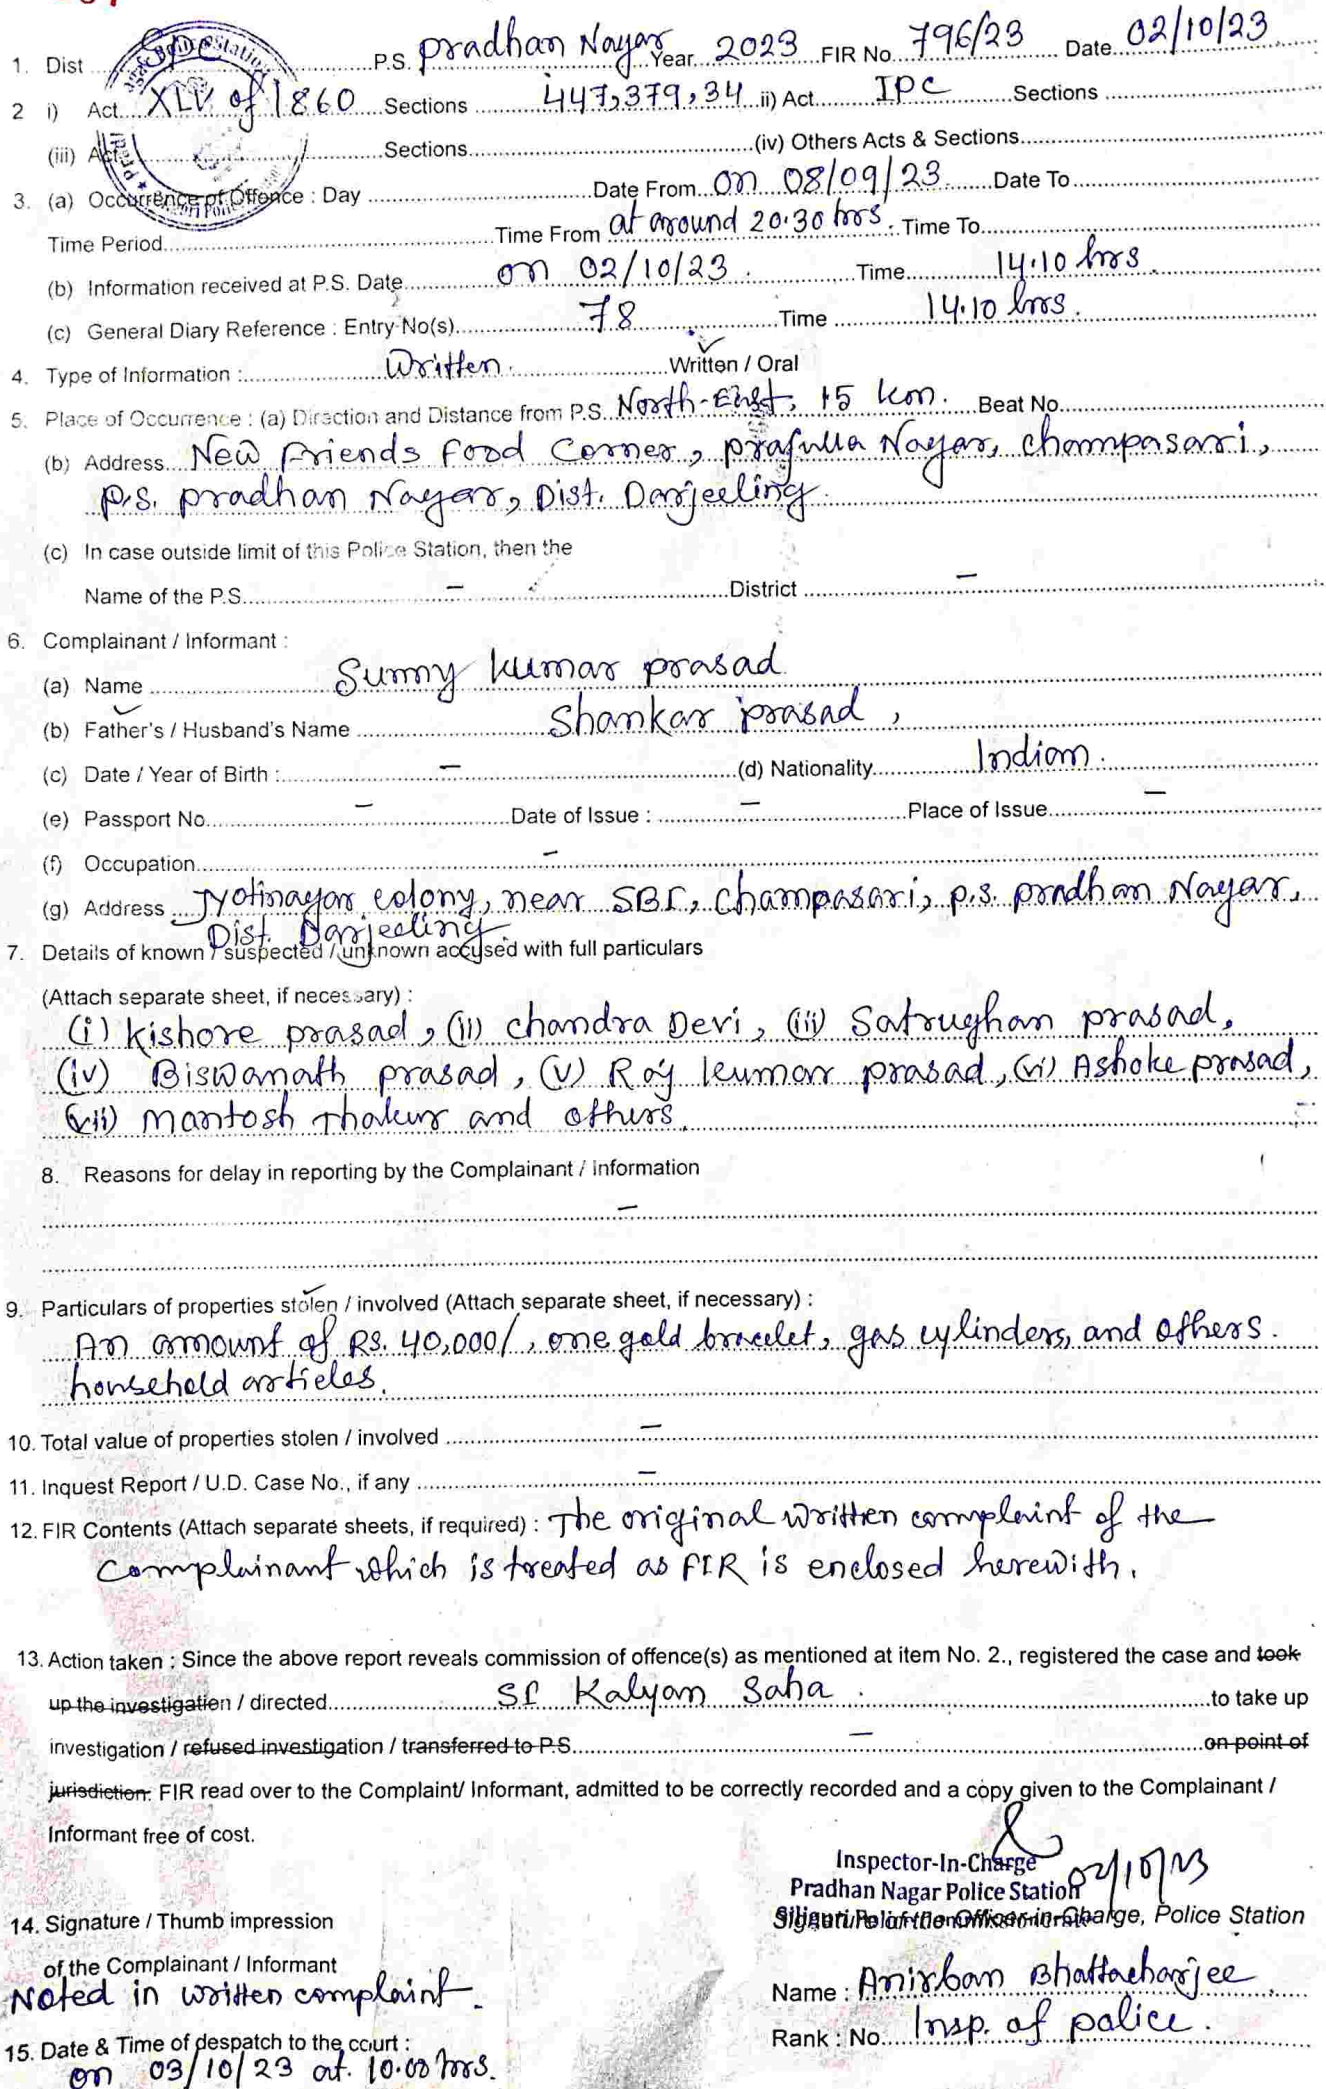 1. Dist ........ P.S. Pradhan Nagar Year 2023 FIR No. 796/23 Date 02/10/23
2 i) Act XLV of 1860 Sections 447,379,34 ii) Act IPC Sections
(iii) Act Sections (iv) Others Acts & Sections
3. (a) Occurrence of Offence : Day Date From on 08/09/23 Date To
Time Period Time From at around 20.30 hrs. Time To
(b) Information received at P.S. Date on 02/10/23. Time 14.10 hrs
(c) General Diary Reference : Entry No(s) 78 Time 14.10 hrs.
4. Type of Information : Written. Written / Oral
5. Place of Occurrence : (a) Direction and Distance from P.S. North-East, 15 km. Beat No.
(b) Address New Friends Food Corner, Prafulla Nagar, Champasari,
P.S. Pradhan Nagar, Dist. Darjeeling.
(c) In case outside limit of this Police Station, then the
Name of the P.S. – District –
6. Complainant / Informant :
(a) Name Sunny Kumar Prasad
(b) Father's / Husband's Name Shankar Prasad,
(c) Date / Year of Birth : – (d) Nationality Indian.
(e) Passport No. – Date of Issue : – Place of Issue –
(f) Occupation –
(g) Address Jyotinagar colony, near SBI, Champasari, P.S. Pradhan Nagar,
Dist. Darjeeling.
7. Details of known / suspected / unknown accused with full particulars
(Attach separate sheet, if necessary) :
(i) Kishore Prasad, (ii) Chandra Devi, (iii) Satrughan Prasad,
(iv) Biswanath Prasad, (v) Raj Kumar Prasad, (vi) Ashoke Prasad,
(vii) Mantosh Thakur and others.
8. Reasons for delay in reporting by the Complainant / Information
–
9. Particulars of properties stolen / involved (Attach separate sheet, if necessary) :
An amount of Rs. 40,000/, one gold bracelet, gas cylinders, and others.
household articles.
10. Total value of properties stolen / involved –
11. Inquest Report / U.D. Case No., if any –
12. FIR Contents (Attach separate sheets, if required) : The original written complaint of the
Complainant which is treated as FIR is enclosed herewith.
13. Action taken : Since the above report reveals commission of offence(s) as mentioned at item No. 2., registered the case and took
up the investigation / directed SI Kalyan Saha. to take up
investigation / refused investigation / transferred to P.S. – on point of
jurisdiction. FIR read over to the Complaint/ Informant, admitted to be correctly recorded and a copy given to the Complainant /
Informant free of cost.
Inspector-In-Charge 02/10/23
Pradhan Nagar Police Station
14. Signature / Thumb impression Officer-in-Charge, Police Station
of the Complainant / Informant
Noted in written complaint.
Name : Anirban Bhattacharjee
Rank : No. Insp. of police.
15. Date & Time of despatch to the court :
on 03/10/23 at. 10.00 hrs.